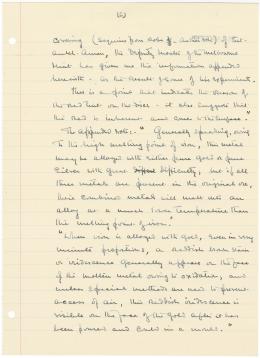 (2)
covering (sequins from robe of) of Tut-
ankh-Amen, the Deputy Master of the Melbourne
Mint has given me the information appended
herewith - as the result of some of his experiments.
This is a point that indicates the reason of
the red tint on the discs - it also suggests that
the Red is inherent and does
The appended note:- "Generally speaking, owing
to the high melting point of iron, this metal
may be alloyed with either pure Gold or pure
Silver with great difficulty, but if all
three metals are present in the original ore,
their combined metals will melt into an
alloy at a much lower temperature than
the melting point of iron."
"When iron is alloyed with gold, even in very
minute proportions, a Reddish brown stain
or iridescence generally appears on the face
of the molten metal owing to oxidation, and
unless special methods are used to prevent
access of air, this Reddish iridescence is
visible on the face of the Gold after it has
been poured and cooled in a mould."